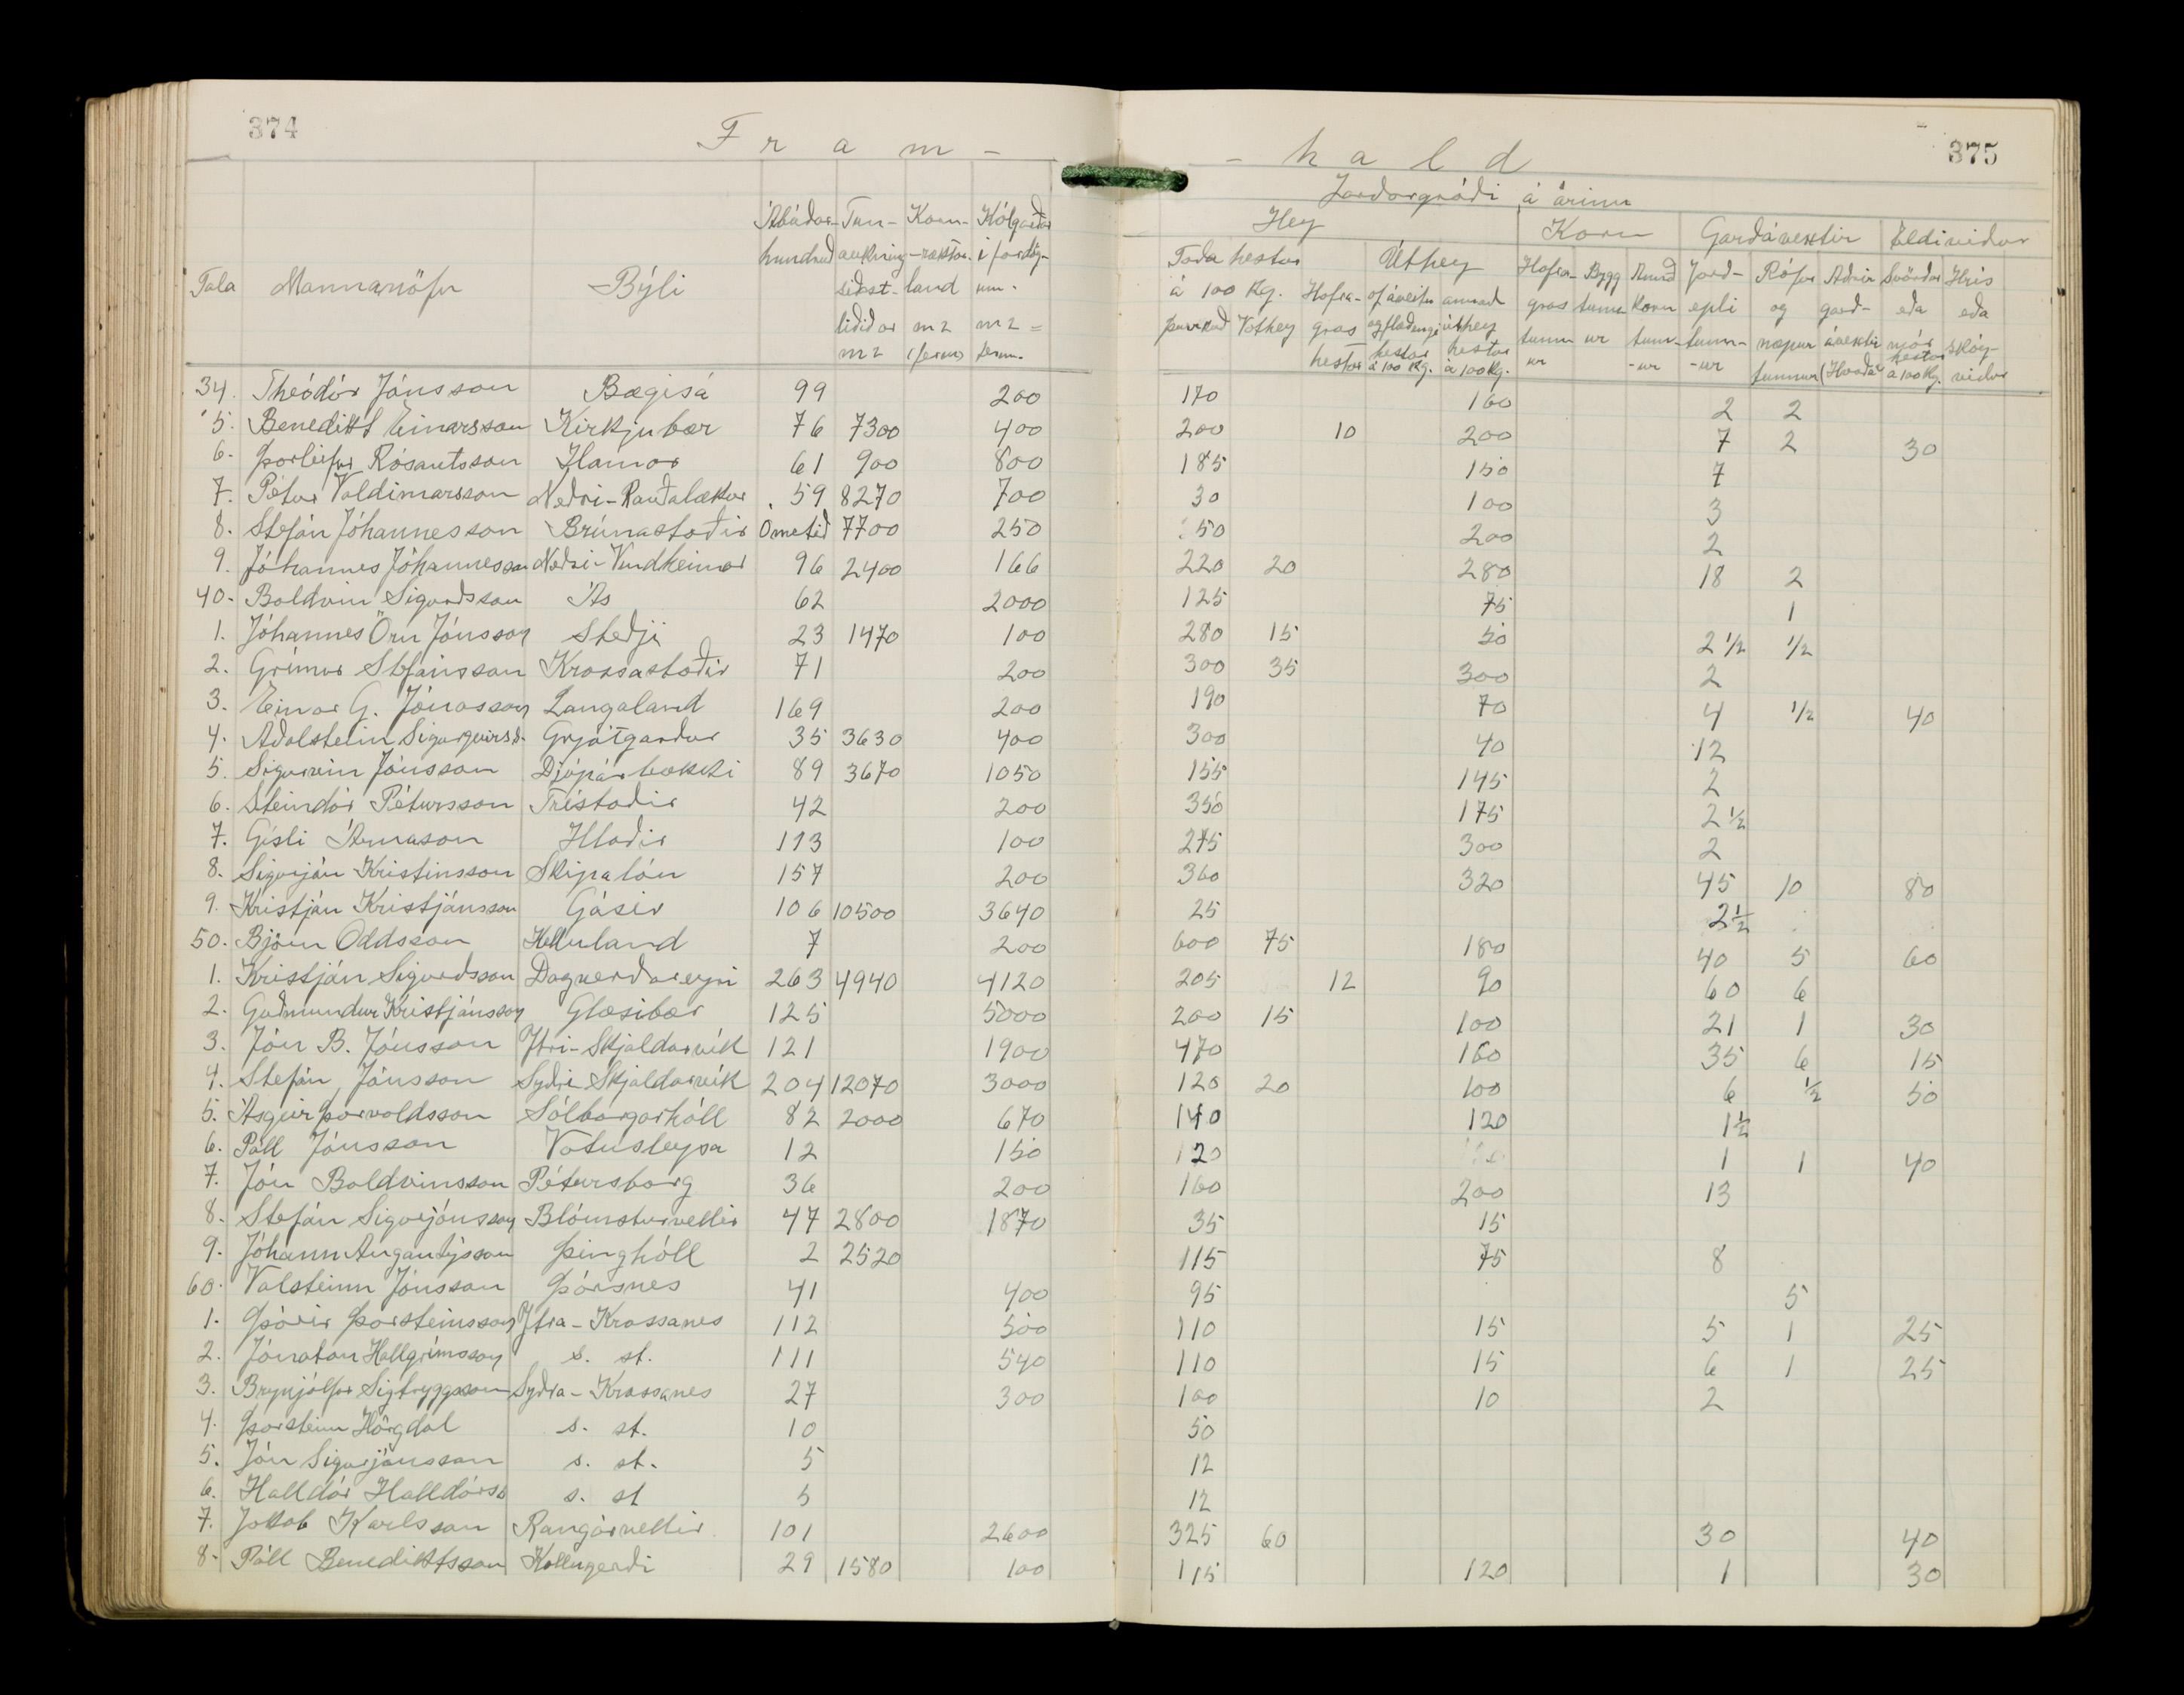 374
F r a m -
Tala Mannanöfn Býli Ábúðar-hundruð Tún-aukning síðast-liðið ár m2 Korn-ræktar-land m2 (ferm) Kálgarðar í fardög-um. m2 = ferm.
34. Theódór Jónsson Bægisá 99 200
'5. Benedikt Einarsson Kirkjubær 76 7300 400
6. Þorleifur Rósantsson Hamar 61 900 800
7. Pétur Valdimarsson Neðri-Rauðalækur 59 8270 700
8. Stefán Jóhannesson Brúnastaðir Ómetið 7700 250
9. Jóhannes Jóhannesson Neðri-Vindheimar 96 2400 166
40. Baldvin Sigurðsson Ás 62 2000
1. Jóhannes Örn Jónsson Steðji 23 1470 100
2. Grímur Stefánsson Krossastaðir 71 200
3. Einar G. Jónasson Laugaland 169 200
4. Aðalsteinn Sigurgeirss. Grjótgarður 35 3630 400
5. Sigurvin Jónsson Djúpárbakki 89 3670 1050
6. Steindór Pétursson Tréstaðir 42 200
7. Gísli Árnason Hlaðir 113 100
8. Sigurjón Kristinsson Skipalón 157 200
9. Kristján Kristjánsson Gásir 106 10500 3640
50. Björn Oddsson Helluland 7 200
1. Kristján Sigurðsson Dagverðareyri 263 4940 4120
2. Guðmundur Kristjánsson Glæsibær 125 5000
3. Jón B. Jónsson Ytri-Skjaldarvík 121 1900
4. Stefán Jónsson Syðri Skjaldarvík 204 12070 3000
5. Ásgeir Þorvaldsson Sólborgarhóll 82 2000 670
6. Páll Jónsson Vatnsleysa 12 150
7. Jón Baldvinsson Pétursborg 36 200
8. Stefán Sigurjónsson Blómsturvellir 47 2800 1870
9. Jóhann Angantýsson Þinghóll 2 2520
60. Valsteinn Jónsson Þórsnes 41 400
1. Þórir Þorsteinsson Ytra-Krossanes 112 500
2. Jónatan Hallgrímsson s. st. 111 540
3. Brynjólfur Sigtryggsson Syðra-Krossanes 27 300
4. Þorsteinn Hörgdal s. st. 10
5. Jón Sigurjónsson s. st. 5
6. Halldór Halldórss s. st 5
7. Jakob Karlsson Rangárvellir 101 2600
8. Páll Benediktsson Kollugerði 29 1580 100
375
- h a l d
Jarðargróði á árinu
Hey Korn Garðávextir Eldiviður
Taða hestar á 100 kg. þurkuð Vothey Hafra-gras hestar Úthey af áveitu og flæðengi hestar á 100 kg. annað úthey hestar á 100 kg. Hafra-gras tunn-ur Bygg tunn-ur korn tunn-ur Jarð-epli tunn-ur Rófur og næpur tunnur Aðrir garð-ávextir Svörður eða mór hestar á 100 kg. Hrís eða skóg-viður
170 160 2 2
200 10 200 7 2 30
185 150 7
30 100 3
50 200 2
220 20 280 18 2
125 75 1
280 15 50 2 1/2 1/2
300 35 300 2
190 70 4 1/2 40
300 40 12
155 145 2
350 175 2 1/2
275 300 2
360 320 45 10 80
25 2 1/2
600 75 180 40 5 60
205 12 90 60 6
200 15 100 21 1 30
470 160 35 6 15
120 20 100 6 1/2 50
140 120 1 1/2
120 1 1 40
160 200 13
35 15
115 75 8
95 5
110 15 5 1 25
110 15 6 1 25
100 10 2
50
12
12
325 60 30 40
115 120 1 30